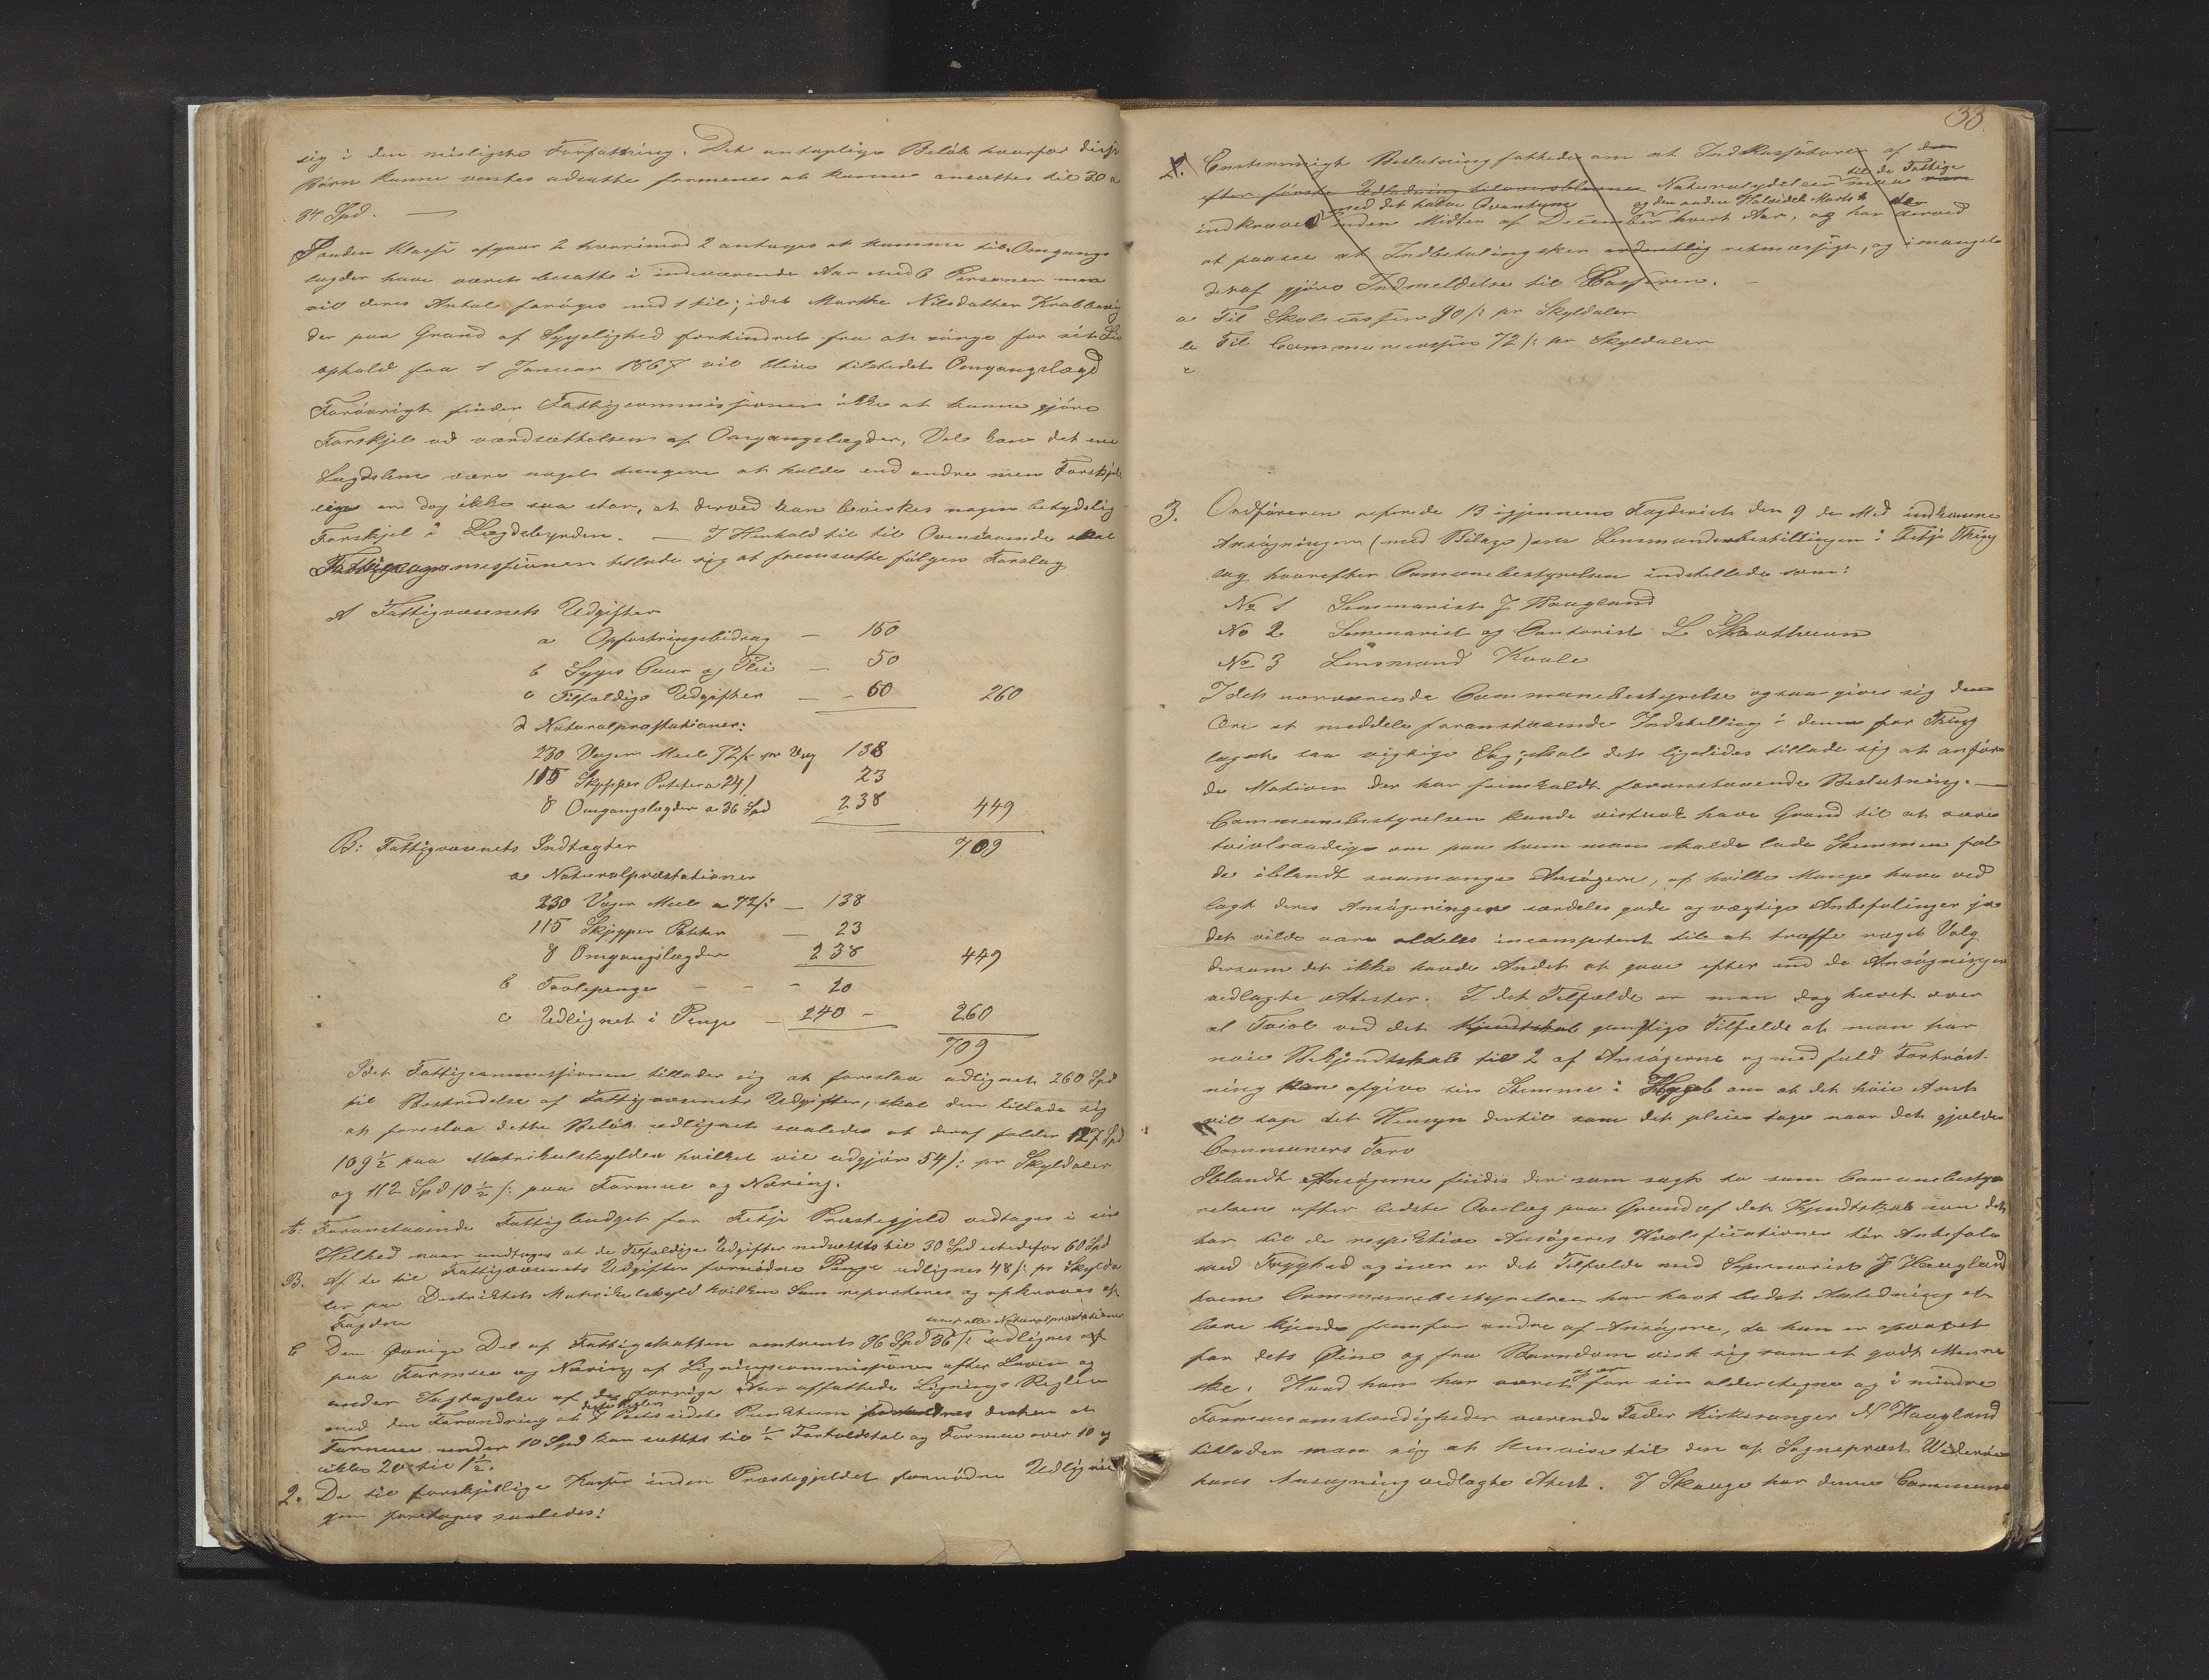 sig i den misligste Forfatning. Det antagelige Beløb hvorfor disse
Børn kunne ventes udsatte formenes at kunne ansættes til 30 a
34 Spd. —
I anden Klasse afgaar 2 hvorimod 2 antages at komme til. Omgangs
lægder have været besatte i indeværende Aar med 6 Personer men
vil deres Antal forøges med 1 til; idet Marthe Nilsdatter Krabbevig
der paa Grund af Sygelighed forhindret fra at sørge for sit Liv
ophold fra 1 Januar 1867 vil blive tilstedet Omgangslægd
Forøvrigt finder Fattigcommissionen ikke at kunne gjøre
Forskjel ved værdsættelsen af Omgangslægder, Vel kan det ene
Lægdslem være noget tungere at holde end andre men Forskjel
len er dog ikke saa stor, at derved kan bevirkes nogen betydelig
Forskjel i Lægdsbyrden. — I Henhold til til Ovenstaaende skal
Fattigcommissionen tillade sig at fremsætte følgen Forslag
A Fattigvæsenets Udgifter
a Opfostringsbidrag — 150
b Syges Cuur og Pleie — 50
c Tilfældige Udgifter — 60 260
d Naturalpræstationer:
230 Voger Meel 72 /: pr Vog 138
115 Skjepper Poteter a 24 /: 23
8 Omgangslægder a 36 Spd 238 449
709
B: Fattigvæsenets Indtægter
a Naturalpræstationer
230 Voger Meel a 72 /: — 138
115 Skjepper Poteter — 23
8 Omgangslægder 238 449
b Tavlepenge — — — 20
c Udlignet i Penge — 240 — 260
709
Idet Fattigcommissionen tillader sig at foreslaa udlignet 260 Spd
til Bestridelse af Fattigvæsenets Udgifter, skal den tillade sig
at foreslaa dette Beløb udlignet saaledes at deraf falder 127 Spd
109 ½ paa Matrikulskylden hvilket vil udgjøre 54 /: pr Skyldaler
og 112 Spd 10 ½ /: paa Formue og Næring.
A: Foranstaaende Fattigbudget for Fitje Præstegjeld vedtages i sin
Helhed naar undtages at de Tilfældige Udgifter nedsættes til 30 Spd istedetfor 60 Spd
B. Af de til Fattigvæsenets Udgifter fornødne Penge udlignes 48 /: pr Skylda
ler paa Distriktets Matrikulskyld hvilken Sum reparteres og opkræves af
Fogden
samt alle Naturalpræstationer
C Den Øvrige Del af Fattigskatten omtrent 96 Spd 36 /: udlignes af
paa Formue og Næring af Ligningscommissionen efter Loven og
under Iagttagelse af de forrige Aar affattede Lignings Regler
med den Forandring at disse Reglers 7 Posts sidste Punktum at
Formue under 10 Spd kan sættes til ½ Forholdstal og Formue over 10 og
ikke 20 til 1½.
2. De til forskjellige Kasser inden Præstegjeldet fornødne Udlignin
ger foretages saaledes:
33.
2. Eenstemmigt Beslutning fattedes om at Indkassatoren af den
til de Fattige
efter første Udlodning tiloversblevne Naturalydelser maa
med det halve Qvantum og den anden Halvdel Marts
indkræves inden Midten af December hvert Aar, og har derved
at paasee at Indbetaling sker ordentlig retmæssigt, og i mangel
deraf gjøre Indmeldelse til Casseren. —
a Til Skolecassen 90 /: pr Skyldaler
b Til Communecassen 72 /: pr Skyldaler
c
3. Ordføreren refererede 13 igjennem Fogderiet den 9 ds Md indkomne
Ansøgninger (med Bilage) om Lensmandsbestillingen i Fitje Thing
lag hvorefter Communebestyrelsen indstillede som:
No 1 Seminarist J Haagland
No 2 Seminarist og Contorist L
No 3 Lensmand Kvale
Idet nærværende Communebestyrelse ogsaa giver sig den
Ære at meddele foranstaaende Indstilling i denne for Thing
laget saa vigtige Sag; skal det ligeledes tillade sig at anføre
de Motiver der har fremkaldt foranstaaende Beslutning. —
Communebestyrelsen kunde vistnok have Grund til at være
tvivlraadige om paa hvem man skulde lade Stemmen fal
de iblandt saamange Ansøgere, af hvilke Mange have ved
lagt deres Ansøgninger særdeles gode og vægtige Anbefalinger ja
det vilde være aldeles incompetent til at træffe noget Valg
dersom det ikke havde Andet at gaae efter end de Ansøgningen
vedlagte Attester. I det Tilfælde er man dog hævet over
al Tvivl ved det gunstige Tilfælde at man har
nøie Bekjendtskab til 2 af Ansøgerne og med fuld Fortrøst-
ning kan afgive sin Stemme i Haab om at det høie Amt
vil tage det Hensyn dertil som det pleier tage naar det gjælder
Communers Tarv
Iblandt Ansøgerne findes der som sagt to som Communebesty
relsen efter bedste Overlæg paa Grund af det Kjendtskab som det
har til de respektive Ansøgeres Kvalificationer tør Anbefale
med Tryghed og især er det Tilfælde med Seminarist J Haagland
hvem Communebestyrelsen har havt bedst Anledning at
lære kjende fremfor andre af Ansøgerne, da han er opvoxet
for dets Øine og fra Barndom vist sig som et godt Menne
ske. Hvad han har været og er for sin alderstegne og i mindre
Formuesomstændigheder værende Fader Kirkesanger N Haagland
tillader man sig at henvise til den af Sognepræst Widerøe
hans Ansøgning vedlagte Attest. I Skauge har denne Commune